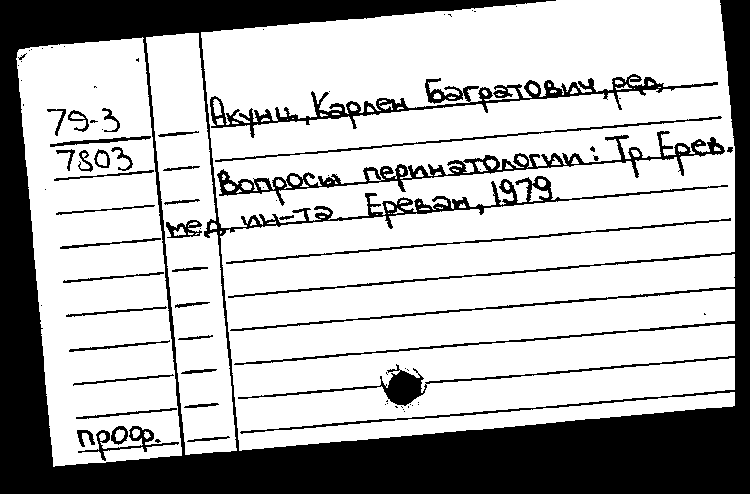 79-3
7803
Акунц, Карлен Багратович, ред.
Вопросы перинатологии: Тр. Ерев.
мед. ин-та. Ереван, 1979.
проф.